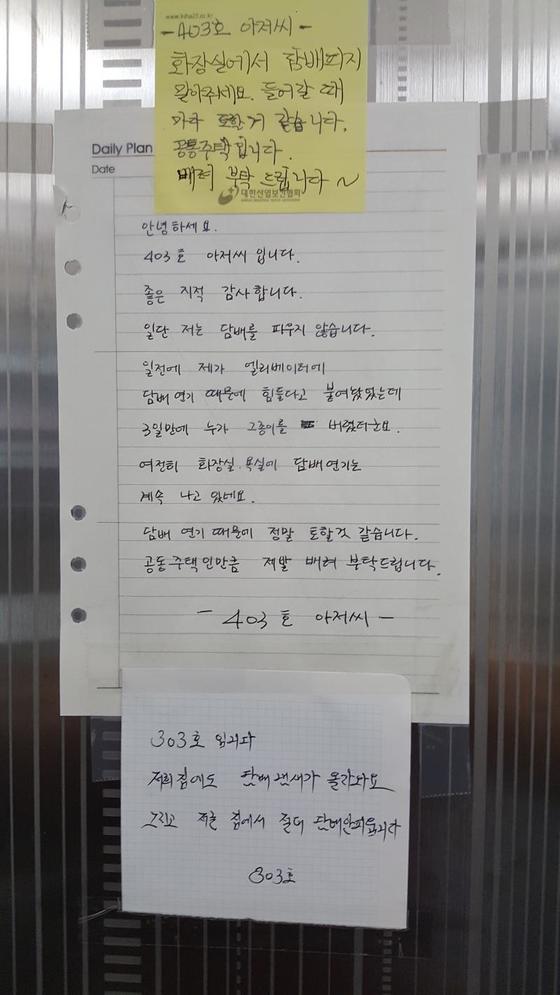 www.kiha21.or.kr
-403호 아저씨-
화장실에서 담배피지
말아주세요. 들어갈 때
마다 토할거 같습니다.
공동주택입니다.
배려 부탁드립니다~
대한산업보건협회
Daily Plan
Date
안녕하세요.
403호 아저씨 입니다.
좋은 지적 감사합니다.
일단 저는 담배를 피우지 않습니다.
일전에 제가 엘리베이터에
담배연기 때문에 힘들다고 붙여놨었는데
3일만에 누가 그종이를 버렸더군요.
여전히 화장실.욕실에 담배연기는
계속 나고 있네요.
담배 연기 때문에 정말 토할것 같습니다.
공동주택인만큼 제발 배려 부탁드립니다.
- 403호 아저씨 -
303호 입니다
저희집에도 담배냄새가 올라와요
그리고 저흰 집에서 절대 담배안피웁니다
303호